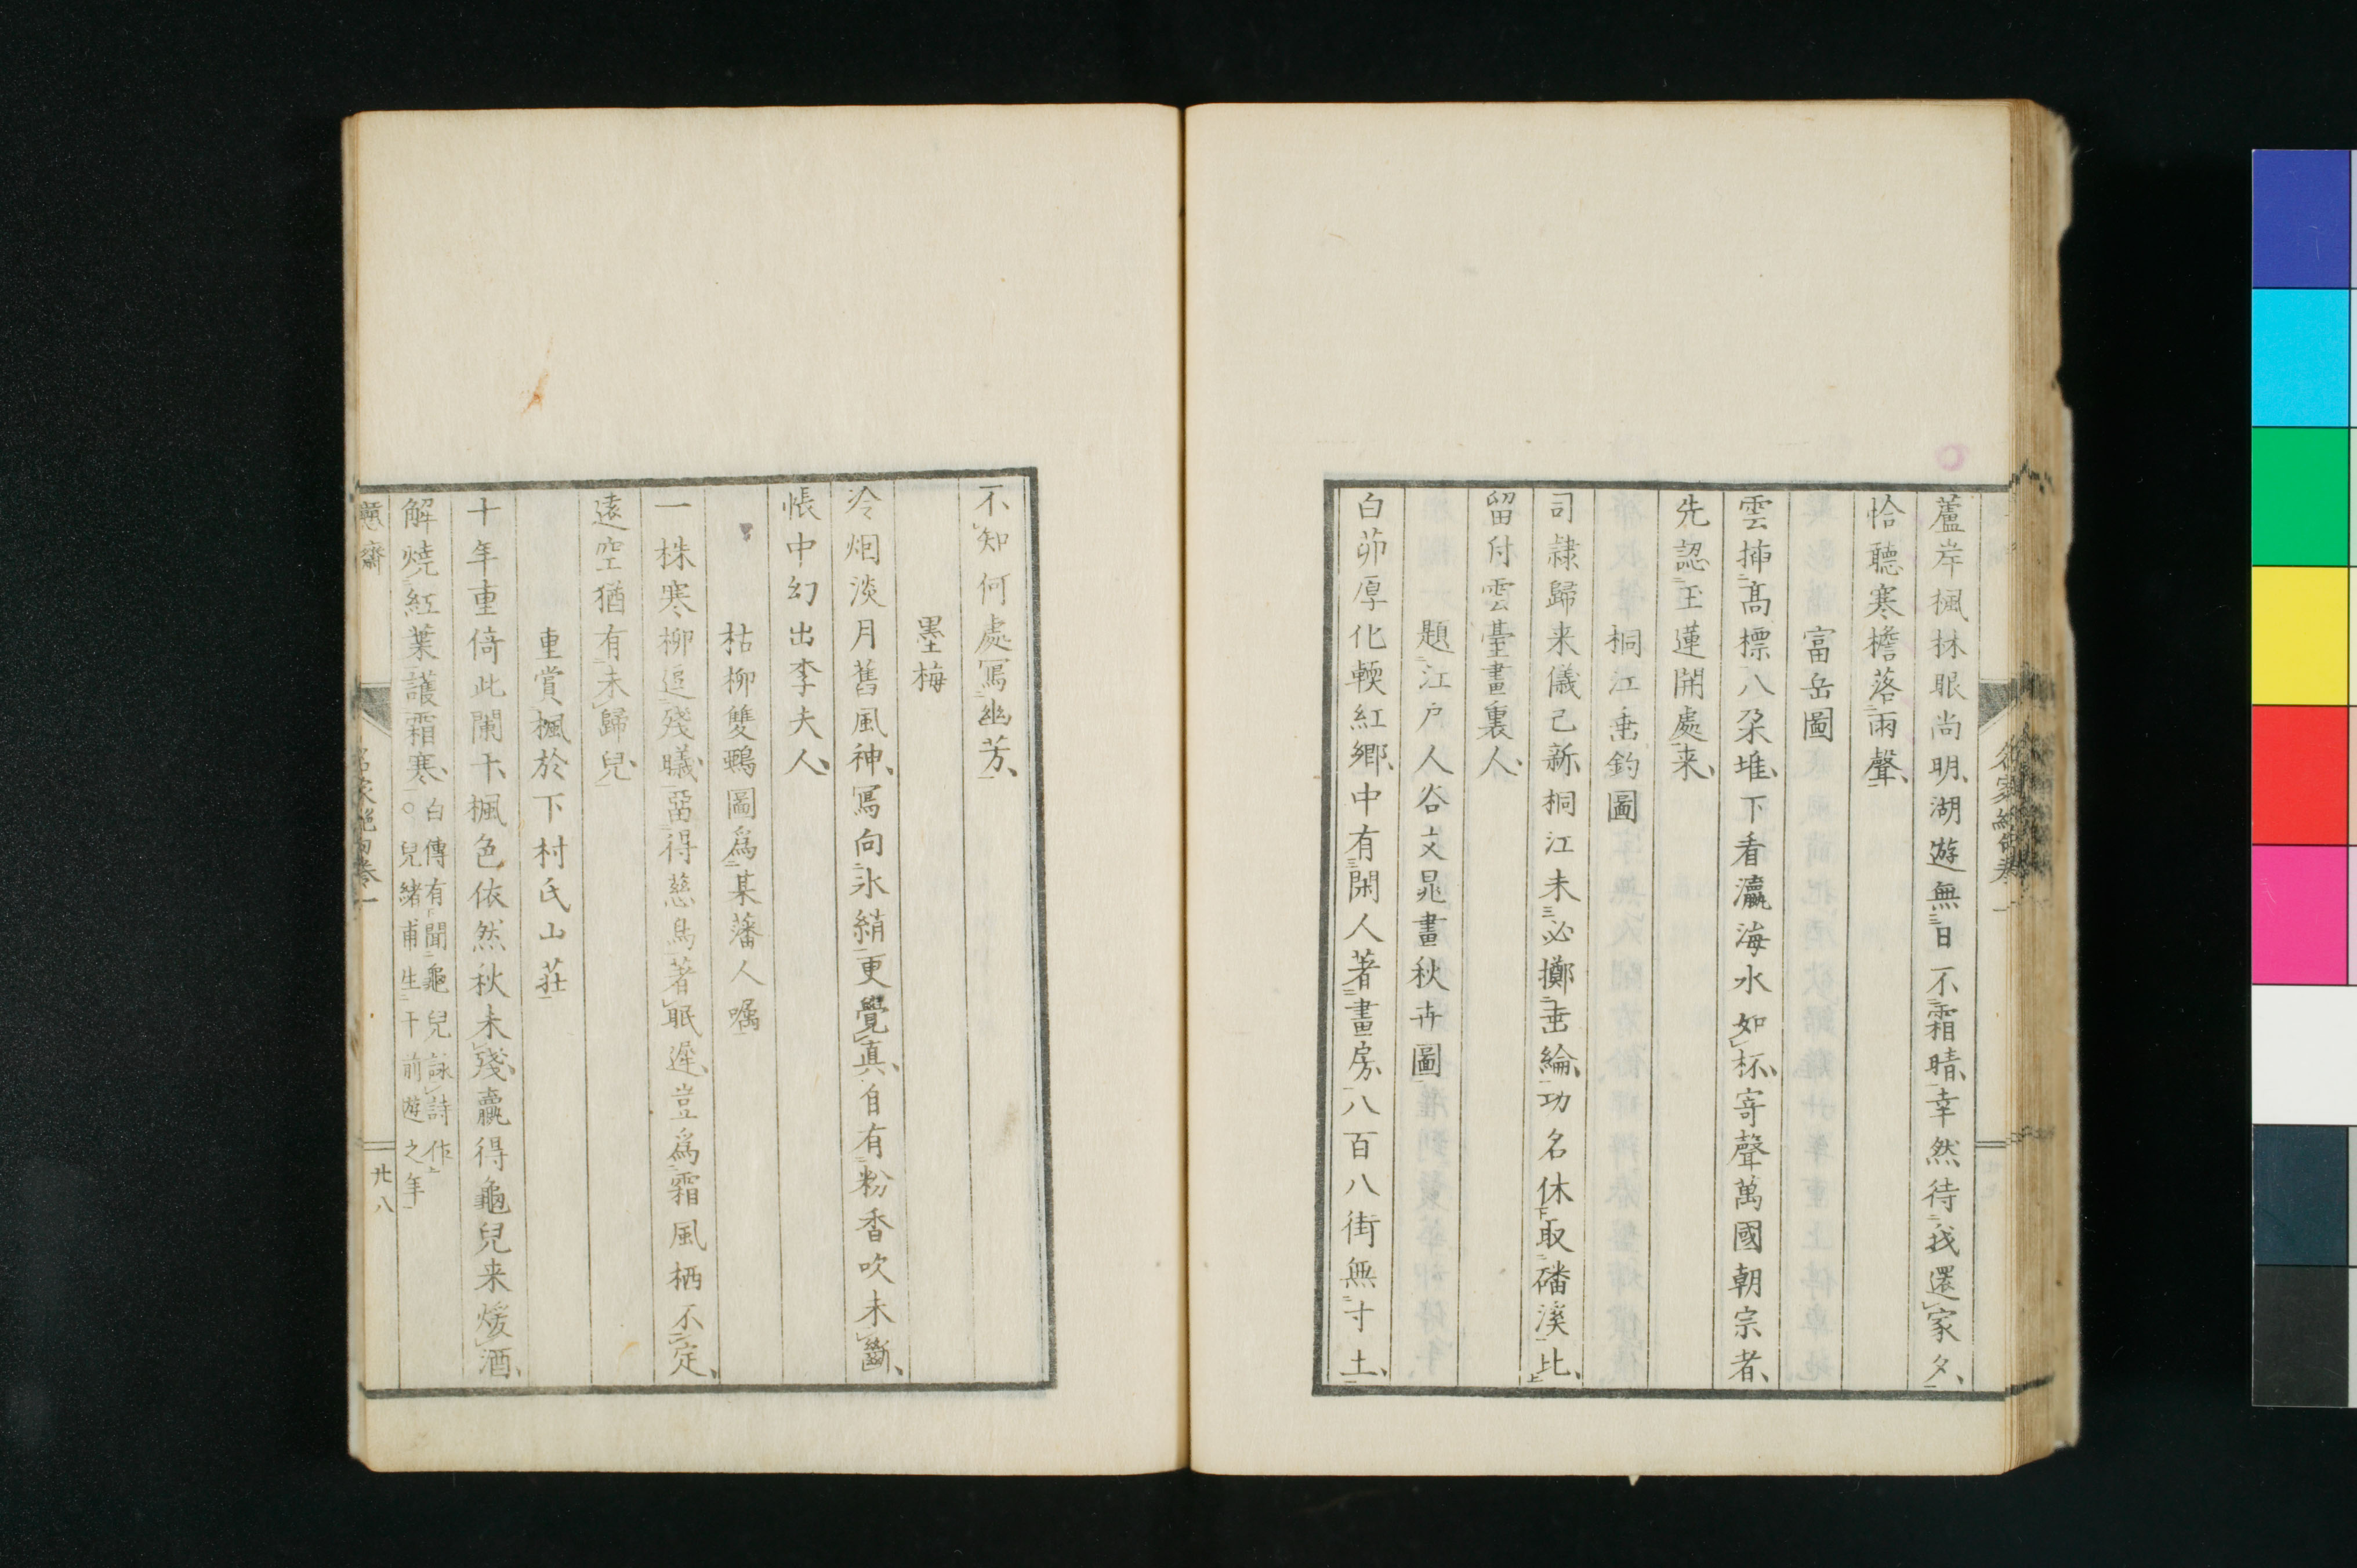 蘆岸楓林眼尚明湖遊無日不霜晴幸然待我還家夕
恰聽寒檐落雨聲
富岳圖
雲揷高標八朶堆下看瀛海水如杯寄聲萬國朝宗者
先認玉蓮開處来
桐江垂釣圖
司隷歸来儀已新桐江未必擲垂綸功名休取磻溪比
留付雲臺畫裏人
題江戸人谷文晁畫秋卉圖
白茆厚化輭紅鄉中有閑人著畫房八百八街無寸土
不知何處寫幽芳
墨梅
冷烟淡月舊風神寫向氷綃更覺真自有粉香吹未斷
帳中幻出李夫人
枯柳雙鵶圖爲某藩人囑
一株寒柳逗殘曦畱得慈烏著眠遲豈爲霜風栖不定
遠空猶有未歸兒
重賞楓於下村氏山莊
十年重倚此闌干楓色依然秋未殘贏得龜兒来煖酒
解燒紅葉護霜寒白傳有聞龜兒詠詩作
○兒緒甫生于前遊之年
名家絶句卷一
廿八